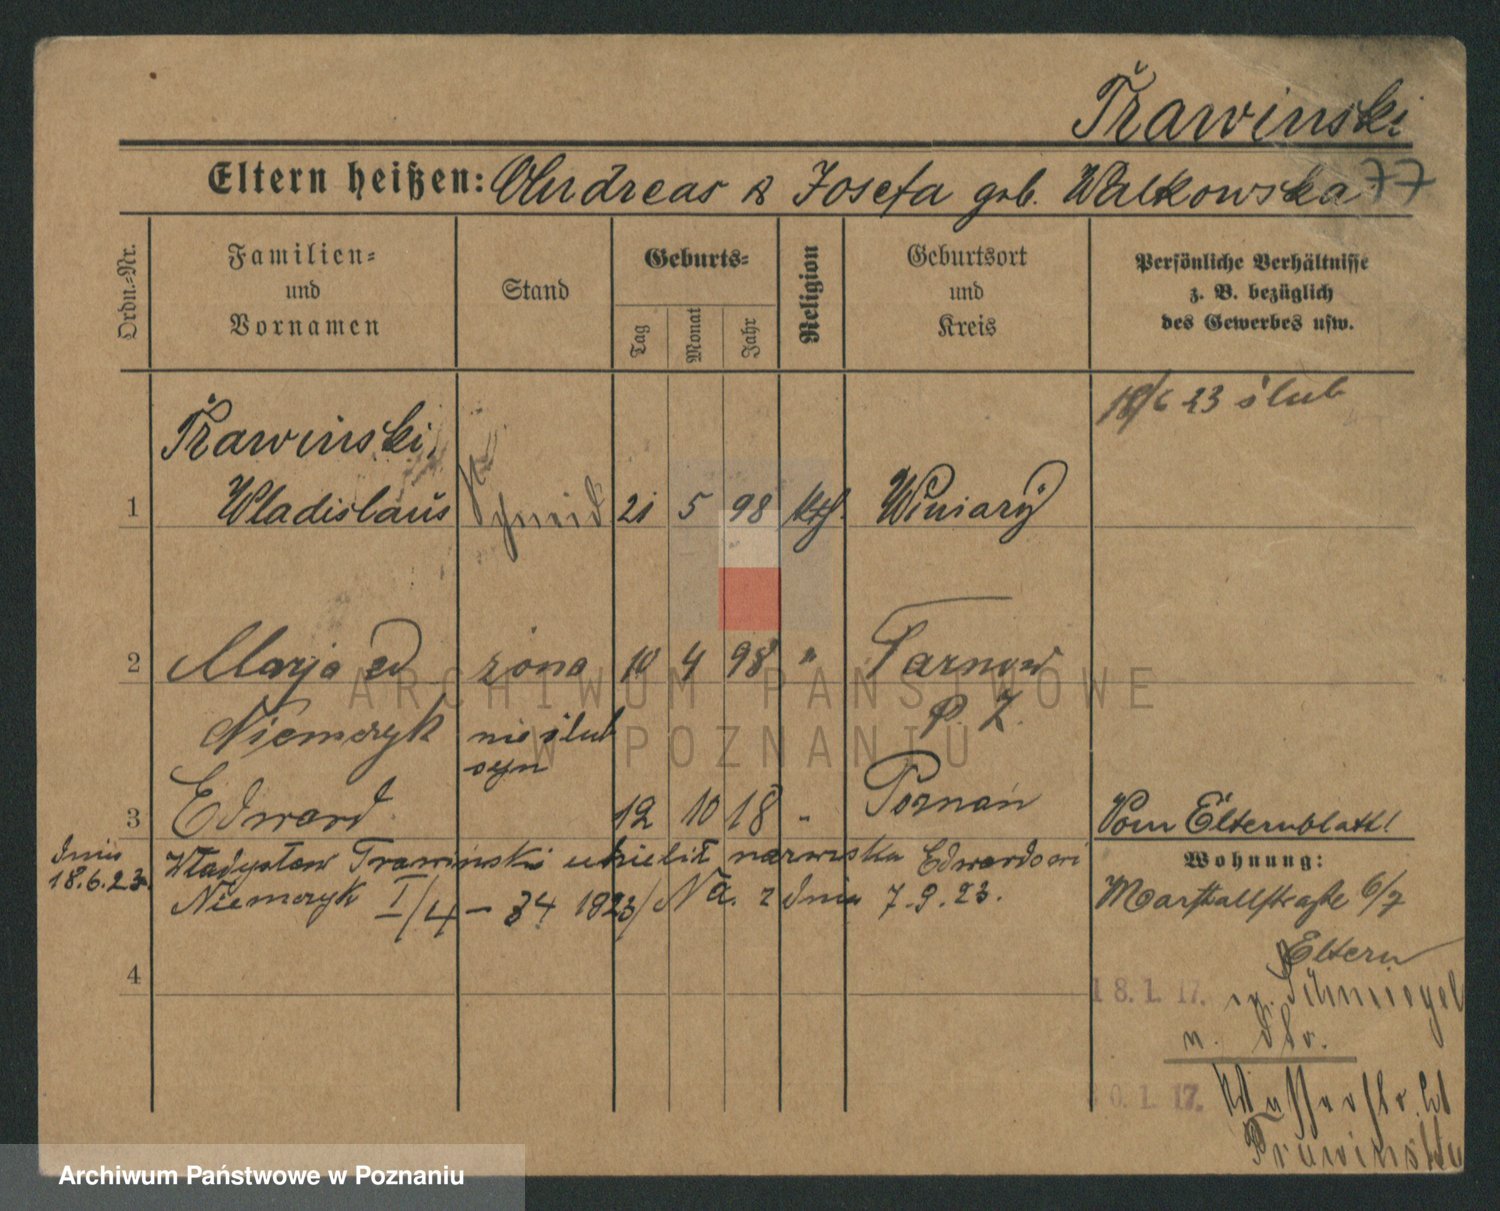 Trawinski
Eltern heißen: Andreas & Josefa geb. Walkowska 77
Ordn.-Nr.
Familien-
und
Vornamen
Stand
Geburts-
Tag
Monat
Jahr
Religion
Geburtsort
und
Kreis
Persönliche Verhältnisse
z. B. bezüglich
des Gewerbes usw.
18/6 23 ślub
Trawinski,
1 Wladislaus Schmied 21 5 98 kth. Winiary
2 Marja zd żona 10 4 98 " Tarnow
Niemczyk nieślub P. Z.
syn
3 Edward 12 10 18 " Poznań Vom Elternblatt!
dnia
18.6.23. Władysław Trawinski udzielił nazwiska Edwardowi
Niemczyk I/4 – 34 1923/ Na. z dnia 7.9.23.
Wohnung:
Marstallstraße 6/7
Eltern
4
18.1.17. Schmiegel
n.
30.1.17. Wasserstr.
Trawinska
ARCHIWUM PAŃSTWOWE
W POZNANIU
Archiwum Państwowe w Poznaniu